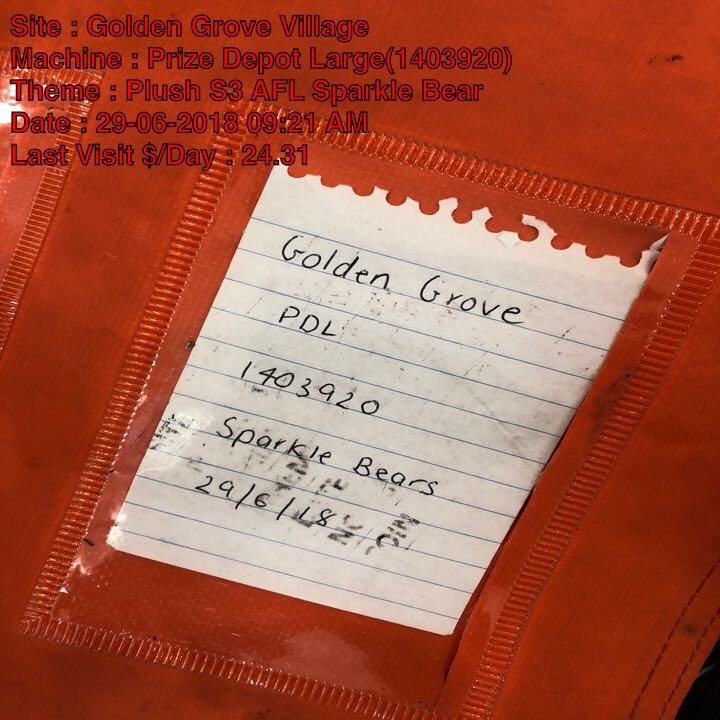 Site : Golden Grove Village
Machine : Prize Depot Large(1403920)
Theme : Plush S3 AFL Sparkle Bear
Date : 29-06-2018 09:21 AM
Last Visit $/Day : 24.31
Golden Grove
PDL
1403920
Sparkle Bears
29/6/18